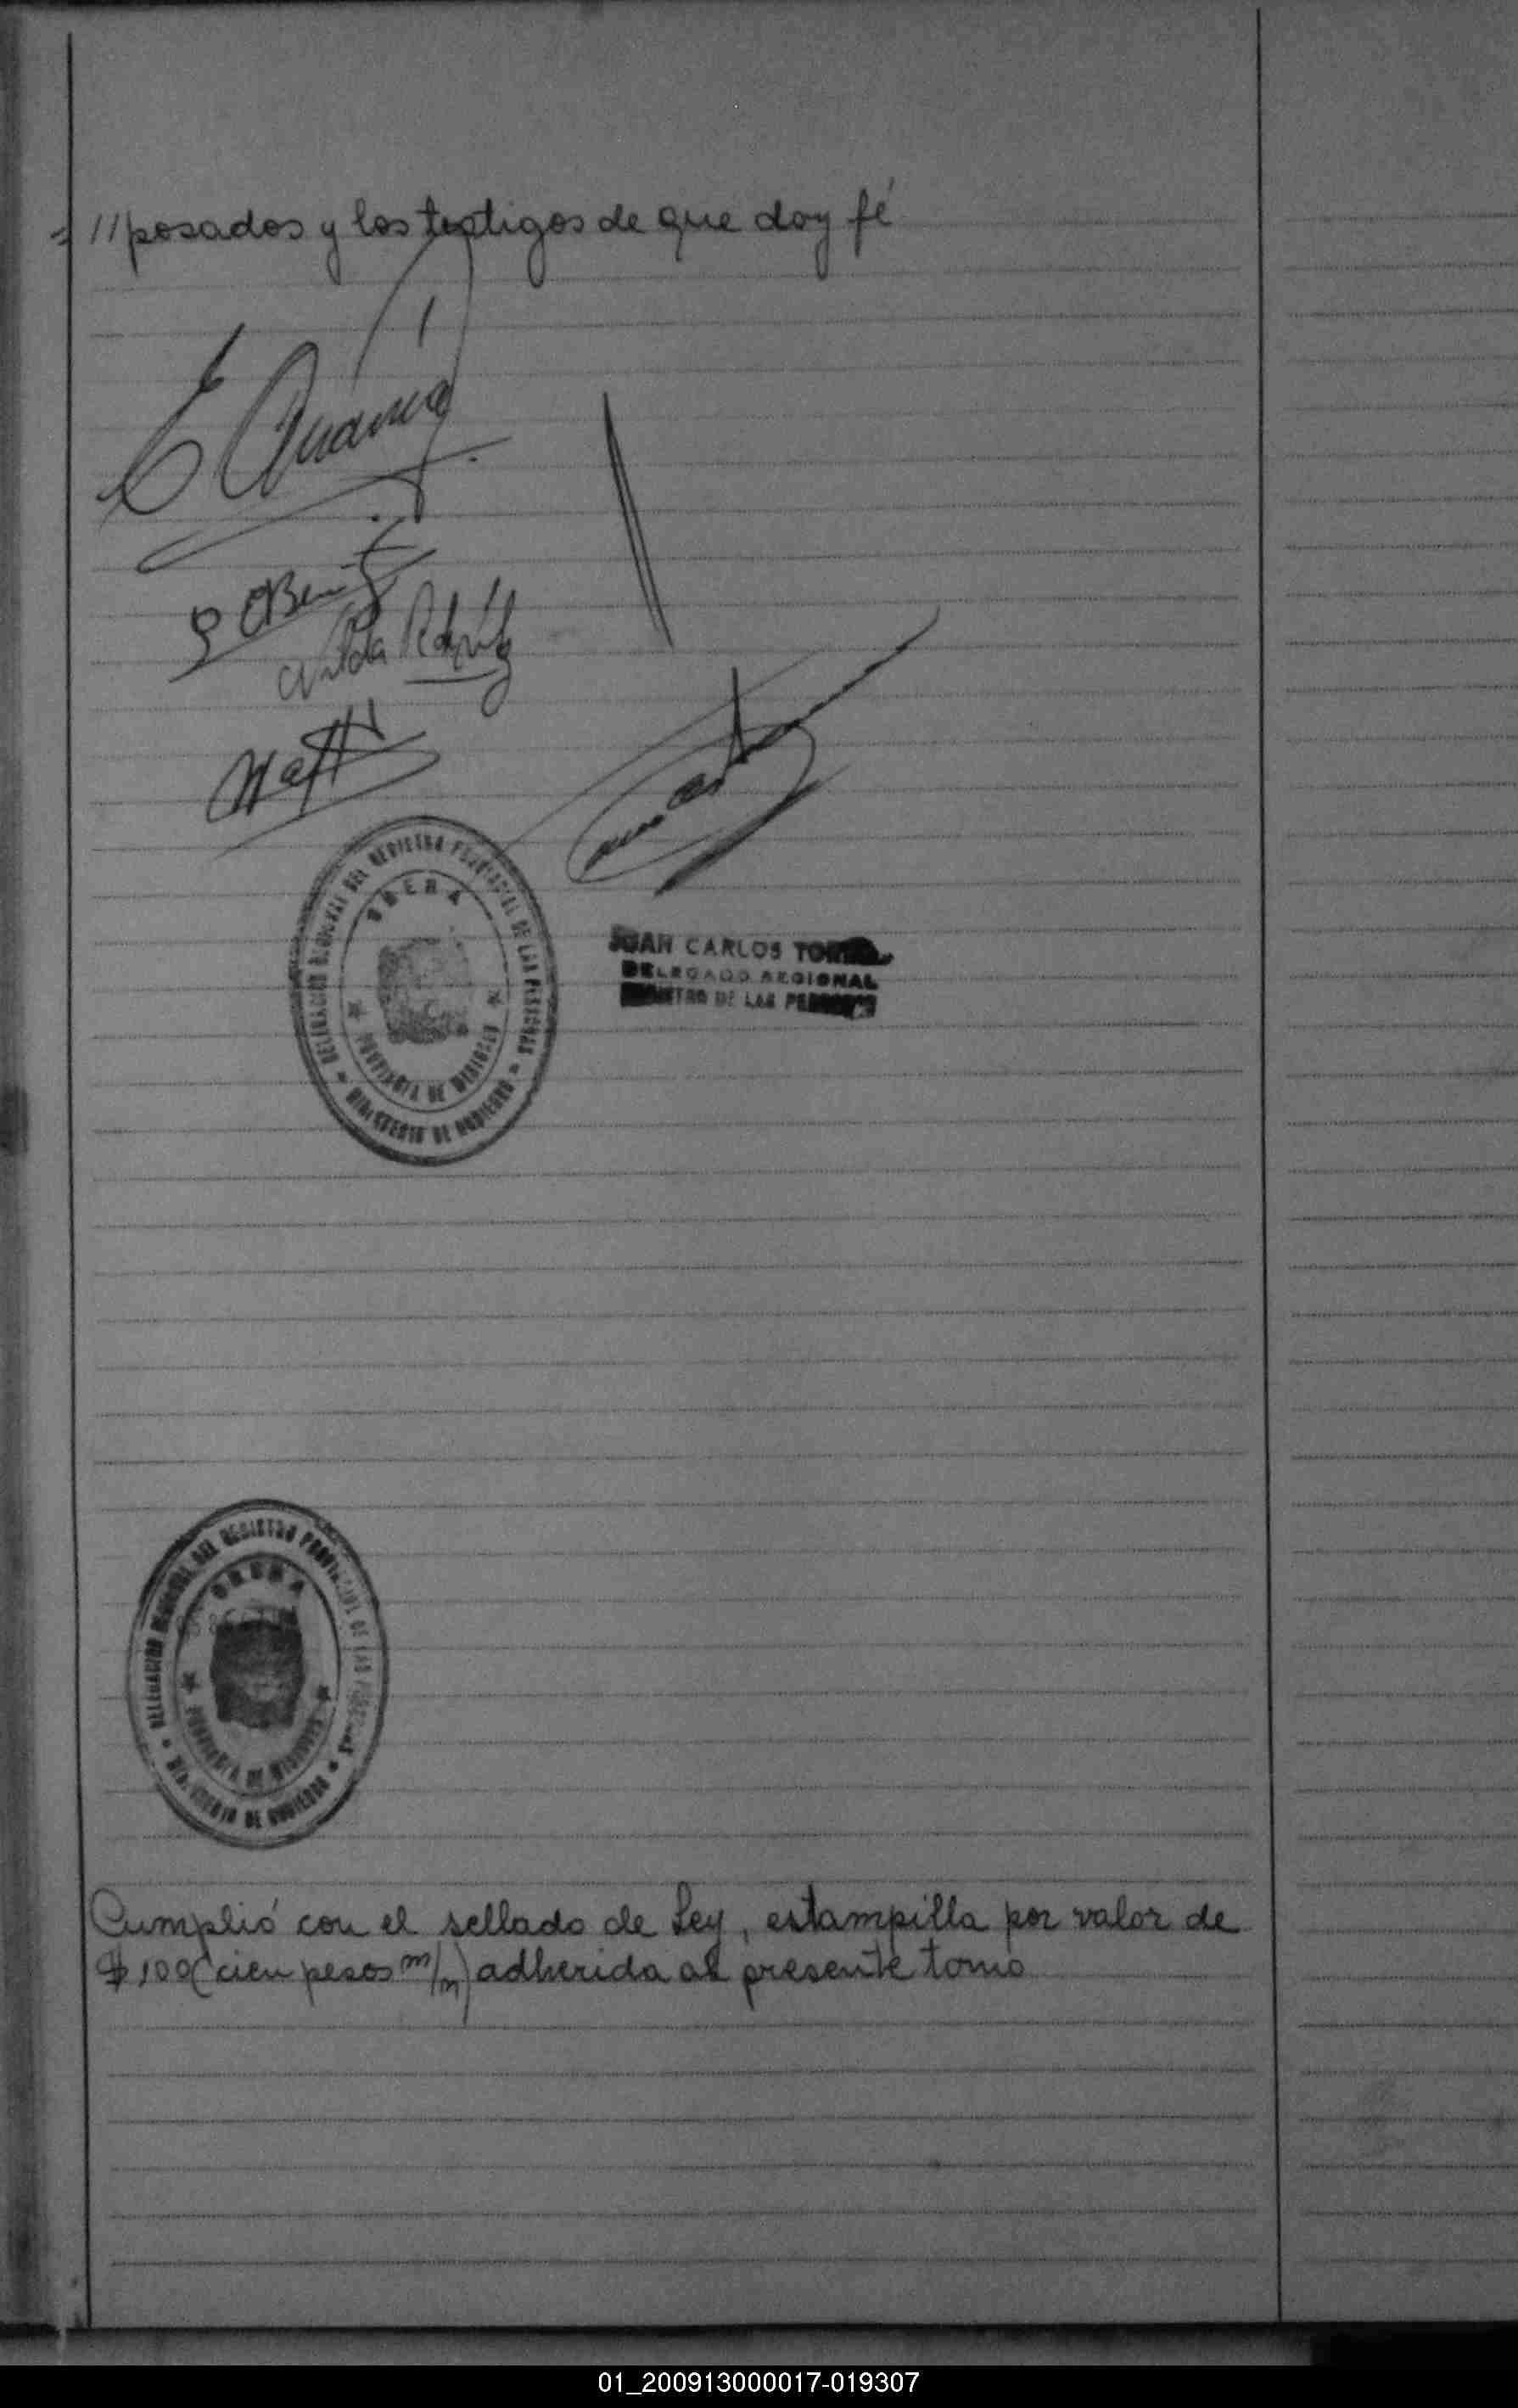 = //posados y los testigos de que doy fé
Nilda
DELEGACION REGIONAL DEL REGISTRO PROVINCIAL DE LAS PERSONAS
OBERA
PROVINCIA DE MISIONES
MINISTERIO DE GOBIERNO
JUAN CARLOS
DELEGADO REGIONAL
REGISTRO DE LAS PERSONAS
DELEGACION REGIONAL DEL REGISTRO PROVINCIAL DE LAS PERSONAS
OBERA
PROVINCIA DE MISIONES
MINISTERIO DE GOBIERNO
Cumplió con el sellado de Ley, estampilla por valor de
$ 100 (cien pesos m/n) adherida al presente tomo
01_200913000017-019307